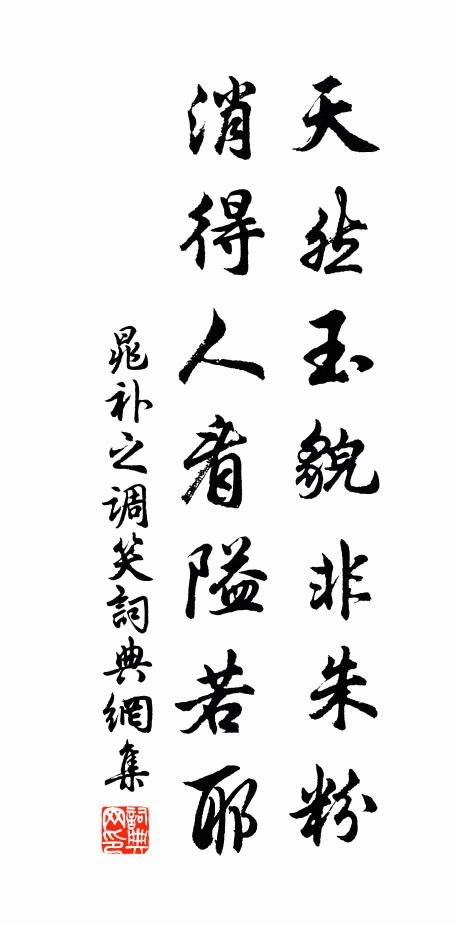 天然玉貌非朱粉
消得人看隘若耶
晁补之调笑词典網集
詞典网印